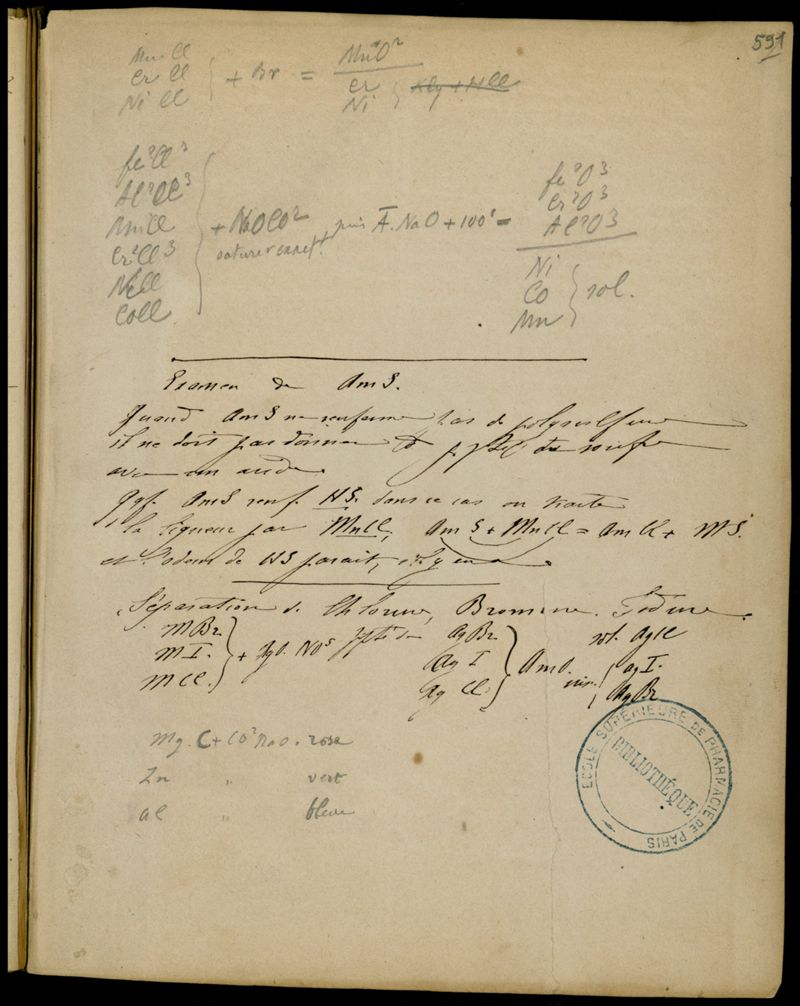 591
Mn Cl
Cr Cl
Ni Cl
+ Br =
Mn²O²
Cr
Ni
fe²Cl³
Al²Cl³
MnCl
Cr²Cl³
NiCl
CoCl
+ NaOCO² puis A. NaO + 100° =
saturer exact.t
fe²O³
Cr²O³
Al²O³
Ni
Co
Mn
sol.
Examen de AmS.
Quand AmS ne renferme pas de polysulfure
il ne doit pas donner de ppté de soufre
avec un acide.
Qqf. AmS renf. HS. dans ce cas on traite
la liqueur par MnCl, AmS + MnCl = AmCl + MS.
et l'odeur de HS parait, s'il y en a.
Séparation de Chlorure, Bromure. Iodure.
MBr
MI.
MCl.
+ AgO. NO⁵ ppté de
AgBr
Ag I
Ag Cl.
AmO.
sol. AgCl
ins.
AgI.
AgBr
Mg. C + CO² NaO. rose
Zn " vert
Al " bleue
ECOLE SUPÉRIEURE DE PHARMACIE DE PARIS
BIBLIOTHÈQUE